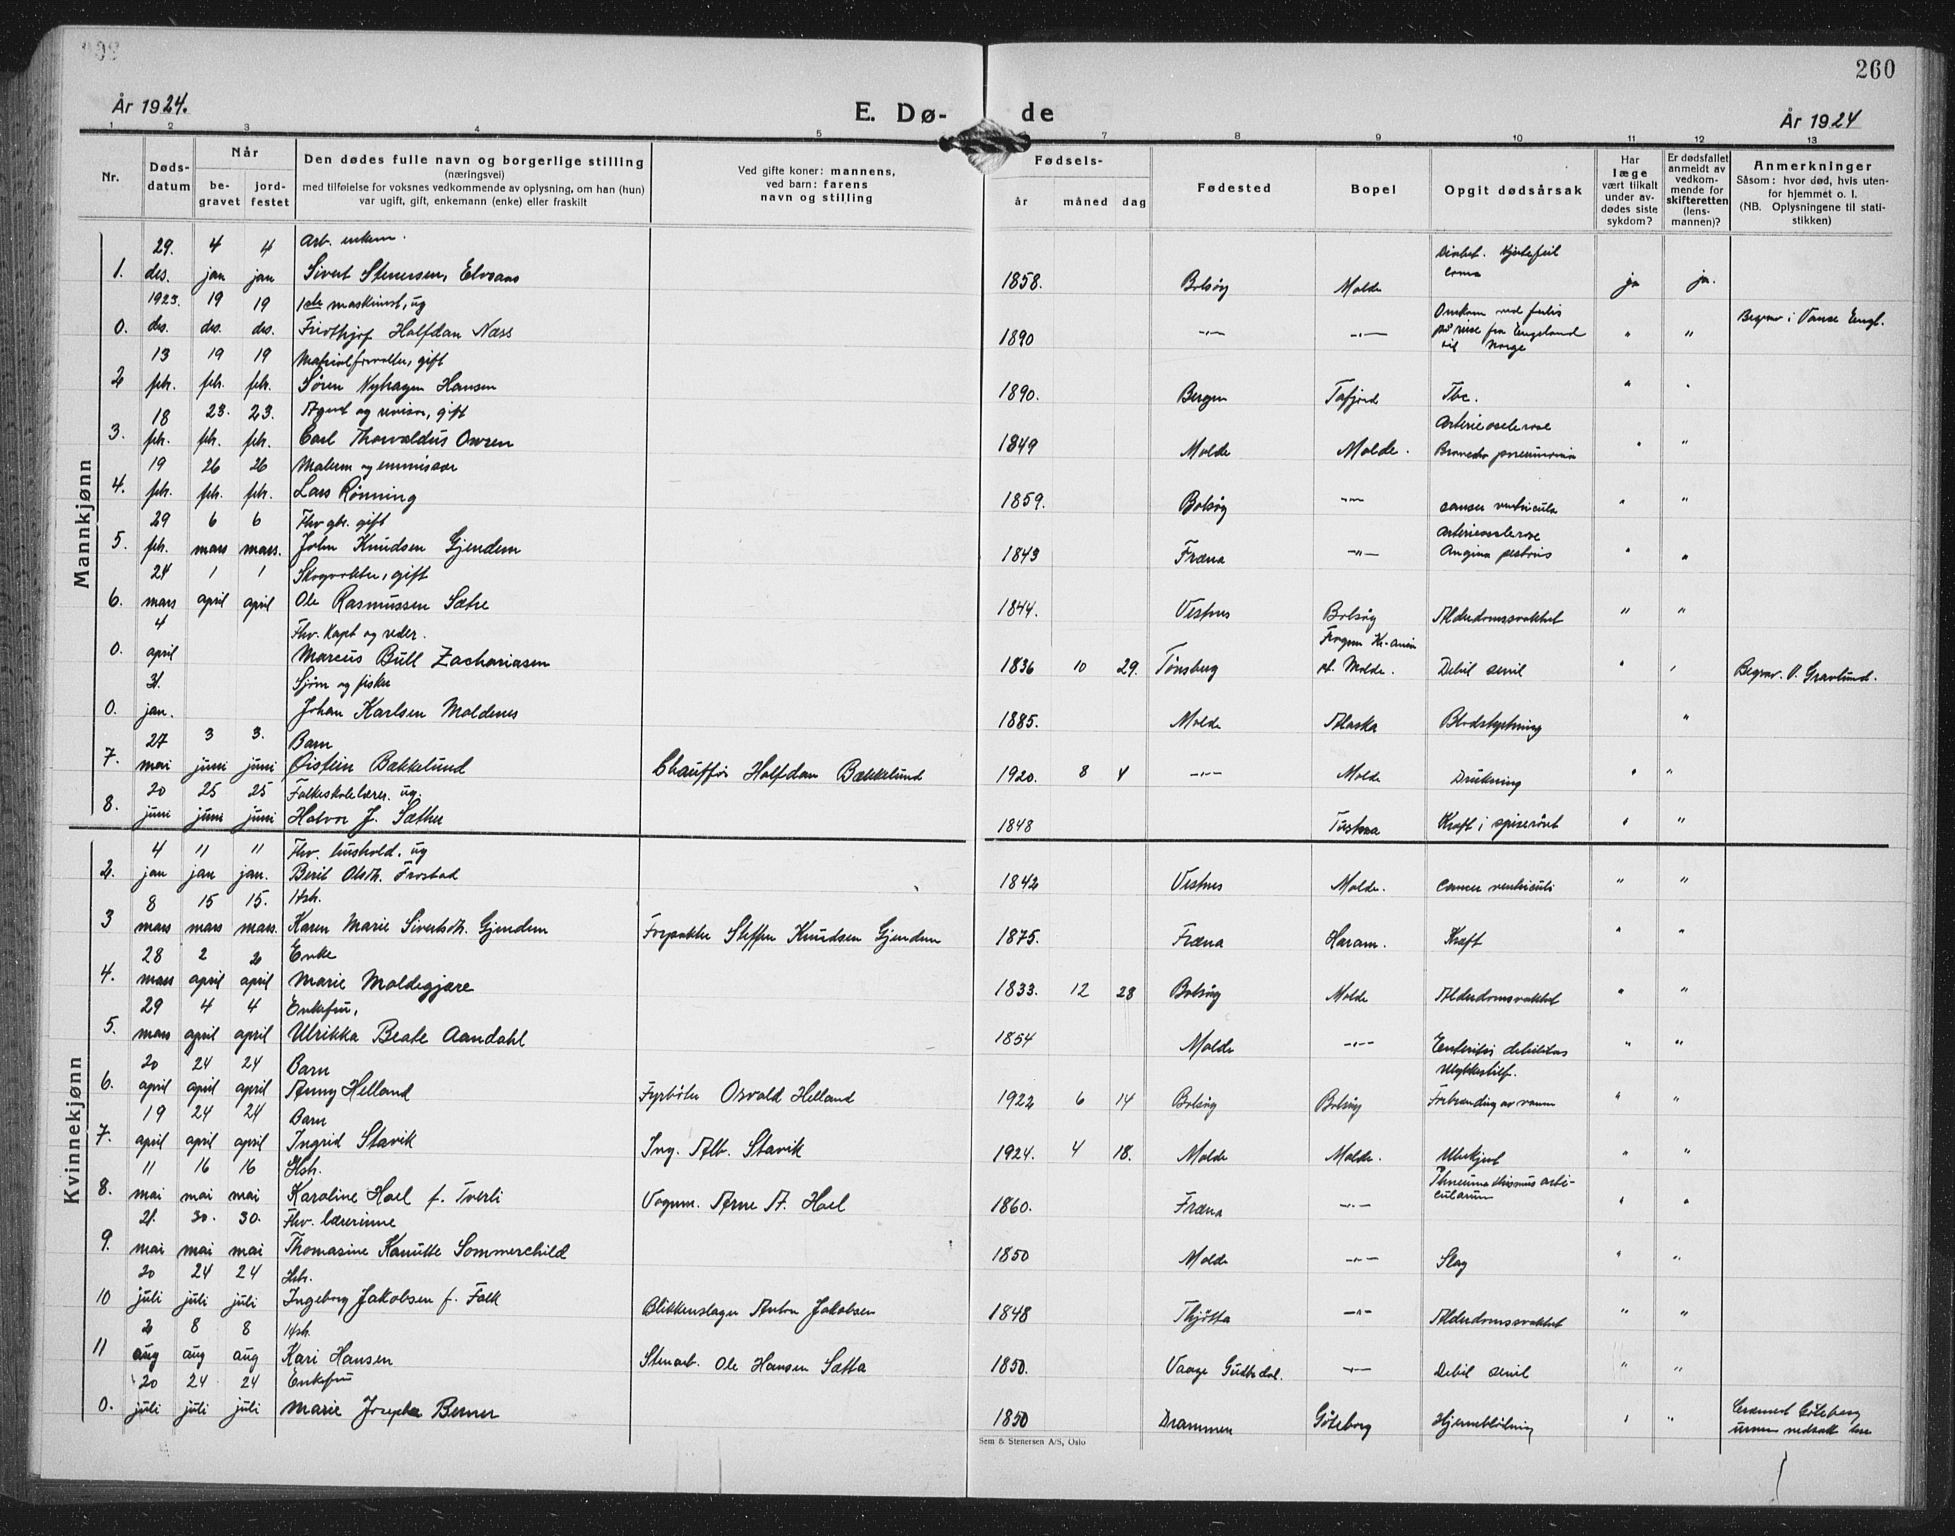 260
År 1924.
E. Dø-
de
År 1924
1 2 3 4 5 7 8 9 10 11 12 13
Nr.
Døds-
datum
Når
be-
gravet
jord-
festet
Den dødes fulle navn og borgerlige stilling
(næringsvei)
med tilføielse for voksnes vedkommende av oplysning, om han (hun)
var ugift, gift, enkemann (enke) eller fraskilt
Ved gifte koner: mannens,
ved barn: farens
navn og stilling
Fødsels-
år måned dag
Fødested
Bopel
Opgit dødsårsak
Har
læge
vært tilkalt
under av-
dødes siste
sykdom?
Er dødsfallet
anmeldt av
vedkom-
mende for
skifteretten
(lens-
mannen)?
Anmerkninger
Såsom: hvor død, hvis uten-
for hjemmet o. l.
(NB. Oplysningene til stati-
stikken)
Mannkjønn
29. 4 4 Arb. enkem.
1. des. jan jan Sivert Stenersen, Elvsaas 1858. Bolsøy Molde Diabet. Hjertefeil coma ja ja.
1923. 19 19 1ste maskinist, ug
0. des. des. des. Fridthjof Halfdan Næss 1890 -"- -"- Omkom ved forlis på reise fra Engeland til Norge " " Begrav. i Vanse Engl.
13 19 19 Materialforvalter, gift
2 feb. feb. feb. Søren Nyhagen Hansen 1890. Bergen Tafjord Tbc. "
18 23. 23. Agent og revisor, gift
3. feb. feb. feb. Carl Thorvaldus Owren 1849 Molde Molde. Arterieosclerose Broncho pneumonia " "
19 26 26 Malerm og emmissær
4. feb. feb. feb. Lars Rønning 1859. Bolsøy -"- cancer ventricula " "
29 6 6 Fhv gbr. gift
5. feb. mars mars. John Knudsen Gjendem 1843 Fræna -"- Arterieosclerose Angina pectoris " "
24 1 1 Skogvokter, gift
6. mars april april Ole Rasmussen Sætre 1844. Vestnes Bolsøy Alderdomssvakhet " "
4 Fhv. Kapt og reder.
0. april Marcus Bull Zachariasen 1836 10 29. Tønsberg Frogner Kr-ania Molde. Debil senil " Begrav. V. Gravlund.
31. Sjøm og fisker
0. jan. Johan Karlsen Moldenes 1885. Molde Alaska Blodstyrtning "
27 3 3. Barn
7. mai juni juni Øistein Bækkelund Chauffør Halfdan Bækkelund 1920. 8 4 -"- Molde Drukning " "
20 25 25 Folkeskolelærer. ug.
8. juni juni juni Halvor J. Sæther 1848 Tustna Kræft i spiserøret " "
Kvinnekjønn
4 11 11 Fhv. hushold. ug
2. jan jan jan. Berit Olsdt. Frostad 1842 Vestnes Molde. cancer ventriculi " "
8 15 15. Hsh.
3 mars mars mars. Karen Marie Sivertsdt. Gjendem Forpakter Steffen Knudsen Gjendem 1875. Fræna Haram. Kræft " "
28 2 2 Enke
4. mars april april Marie Moldegjære 1833. 12 28 Bolsøy Molde Alderdomssvakhet " "
29 4 4 Enkefru,
5. mars april april Ulrikka Beate Aandahl 1854 Molde -"- Enteritis debilitas " "
20 24 24 Barn
6. april april april Anny Helland Fyrbøter Osvald Helland 1922 6 14 Bolsøy Bolsøy Ulykkestilf. Forbrænding av vann " "
19 24 24 Barn
7. april april april Ingrid Stavik Ing. Alb. Stavik 1924. 4 18. Molde Molde. Ubekjent " "
11 16 16 Hsh.
8. mai mai mai Karoline Hoel f. Tverli Vognm. Arne A. Hoel 1860. Fræna -"- " "
21. 30. 30. Fhv. lærerinne
9. mai mai mai Thomasine Kanutte Sommerschild 1850 Molde -"- Slag " "
20 24 24 Hsh.
10 juli juli juli Ingeborg Jakobsen f. Falk Blikkenslager Anton Jakobsen 1848 Thjøtta -"- Alderdomssvakhet " "
2 8 8 Hsh.
11 aug aug aug Kari Hansen Stenarb. Ole Hansen Sætta 1850. Vaage Gudbr.dal. -"- Debil senil " "
20 24 24 Enkefru
0. juli juli juli Marie Josepha Berner 1850 Drammen Göteborg Hjerneblødning " " Cremert Göteborg urnen nedsatt her
Sem & Stenersen A/S, Oslo